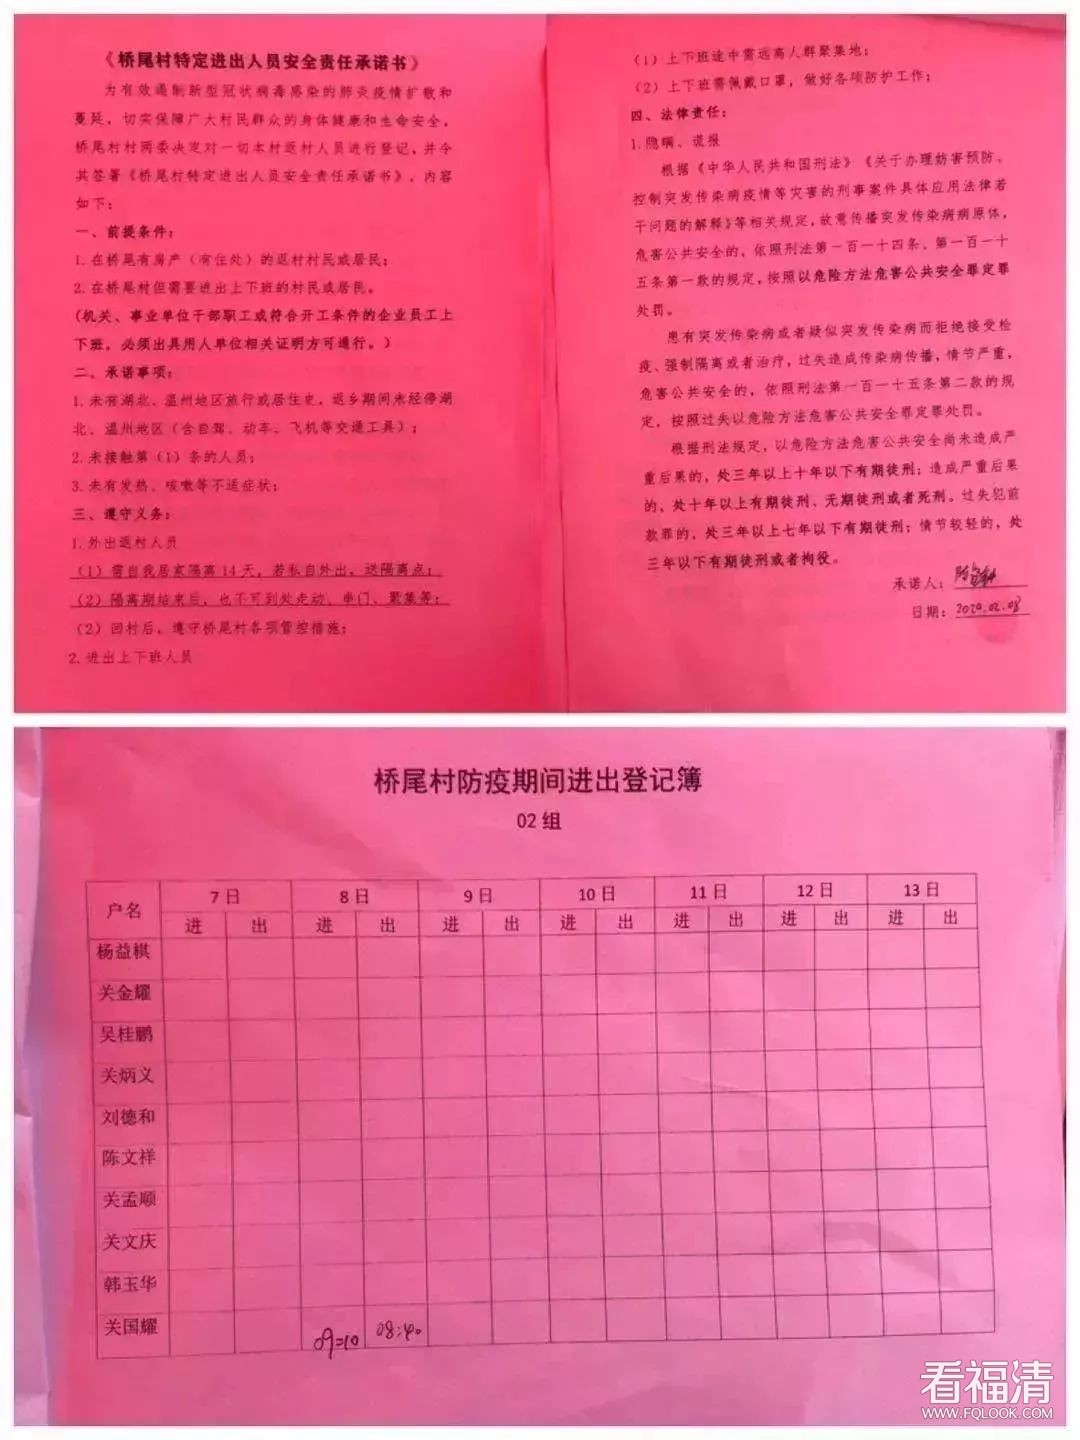 《桥尾村特定进出人员安全责任承诺书》
为有效遏制新型冠状病毒感染的肺炎疫情扩散和
蔓延，切实保障广大村民群众的身体健康和生命安全，
桥尾村村两委决定对一切本村返村人员进行登记，并令
其签署《桥尾村特定进出人员安全责任承诺书》，内容
如下：
一、前提条件：
1.在桥尾有房产（有住处）的返村村民或居民；
2.在桥尾但需要进出上下班的村民或居民。
(机关、事业单位干部职工或符合开工条件的企业员工上
下班，必须出具用人单位相关证明方可通行。)
二、承诺事项：
1.未有湖北、温州地区旅行或居住史，返乡期间未经停湖
北、温州地区（含自驾、动车、飞机等交通工具）；
2.未接触第（1）条的人员；
3.未有发热、咳嗽等不适症状；
三、遵守义务：
1.外出返村人员
（1）需自我居家隔离14天，若私自外出，送隔离点；
（2）隔离期结束后，也不可到处走动、串门、聚集等；
（2）回村后，遵守桥尾村各项管控措施；
2.进出上下班人员
（1）上下班途中需远离人群聚集地；
（2）上下班需佩戴口罩，做好各项防护工作；
四、法律责任：
1.隐瞒、谎报
根据《中华人民共和国刑法》《关于办理妨害预防、
控制突发传染病疫情等灾害的刑事案件具体应用法律若
干问题的解释》等相关规定，故意传播突发传染病病原体，
危害公共安全的，依照刑法第一百一十四条、第一百一十
五条第一款的规定，按照以危险方法危害公共安全罪定罪
处罚。
患有突发传染病或者疑似突发传染病而拒绝接受检
疫、强制隔离或者治疗，过失造成传染病传播，情节严重，
危害公共安全的，依照刑法第一百一十五条第二款的规
定，按照过失以危险方法危害公共安全罪定罪处罚。
根据刑法规定，以危险方法危害公共安全尚未造成严
重后果的，处三年以上十年以下有期徒刑；造成严重后果
的，处十年以上有期徒刑、无期徒刑或者死刑。过失犯前
款罪的，处三年以上七年以下有期徒刑；情节较轻的，处
三年以下有期徒刑或者拘役。
承诺人：
日期：2020.02.08
桥尾村防疫期间进出登记簿
02 组
户名 7 日 8 日 9 日 10 日 11 日 12 日 13 日
进 出 进 出 进 出 进 出 进 出 进 出 进 出
杨益棋
关金耀
吴桂鹏
关炳义
刘德和
陈文祥
关孟顺
关文庆
韩玉华
关国耀 09=10 08:40
看福清
WWW.FQLOOK.COM